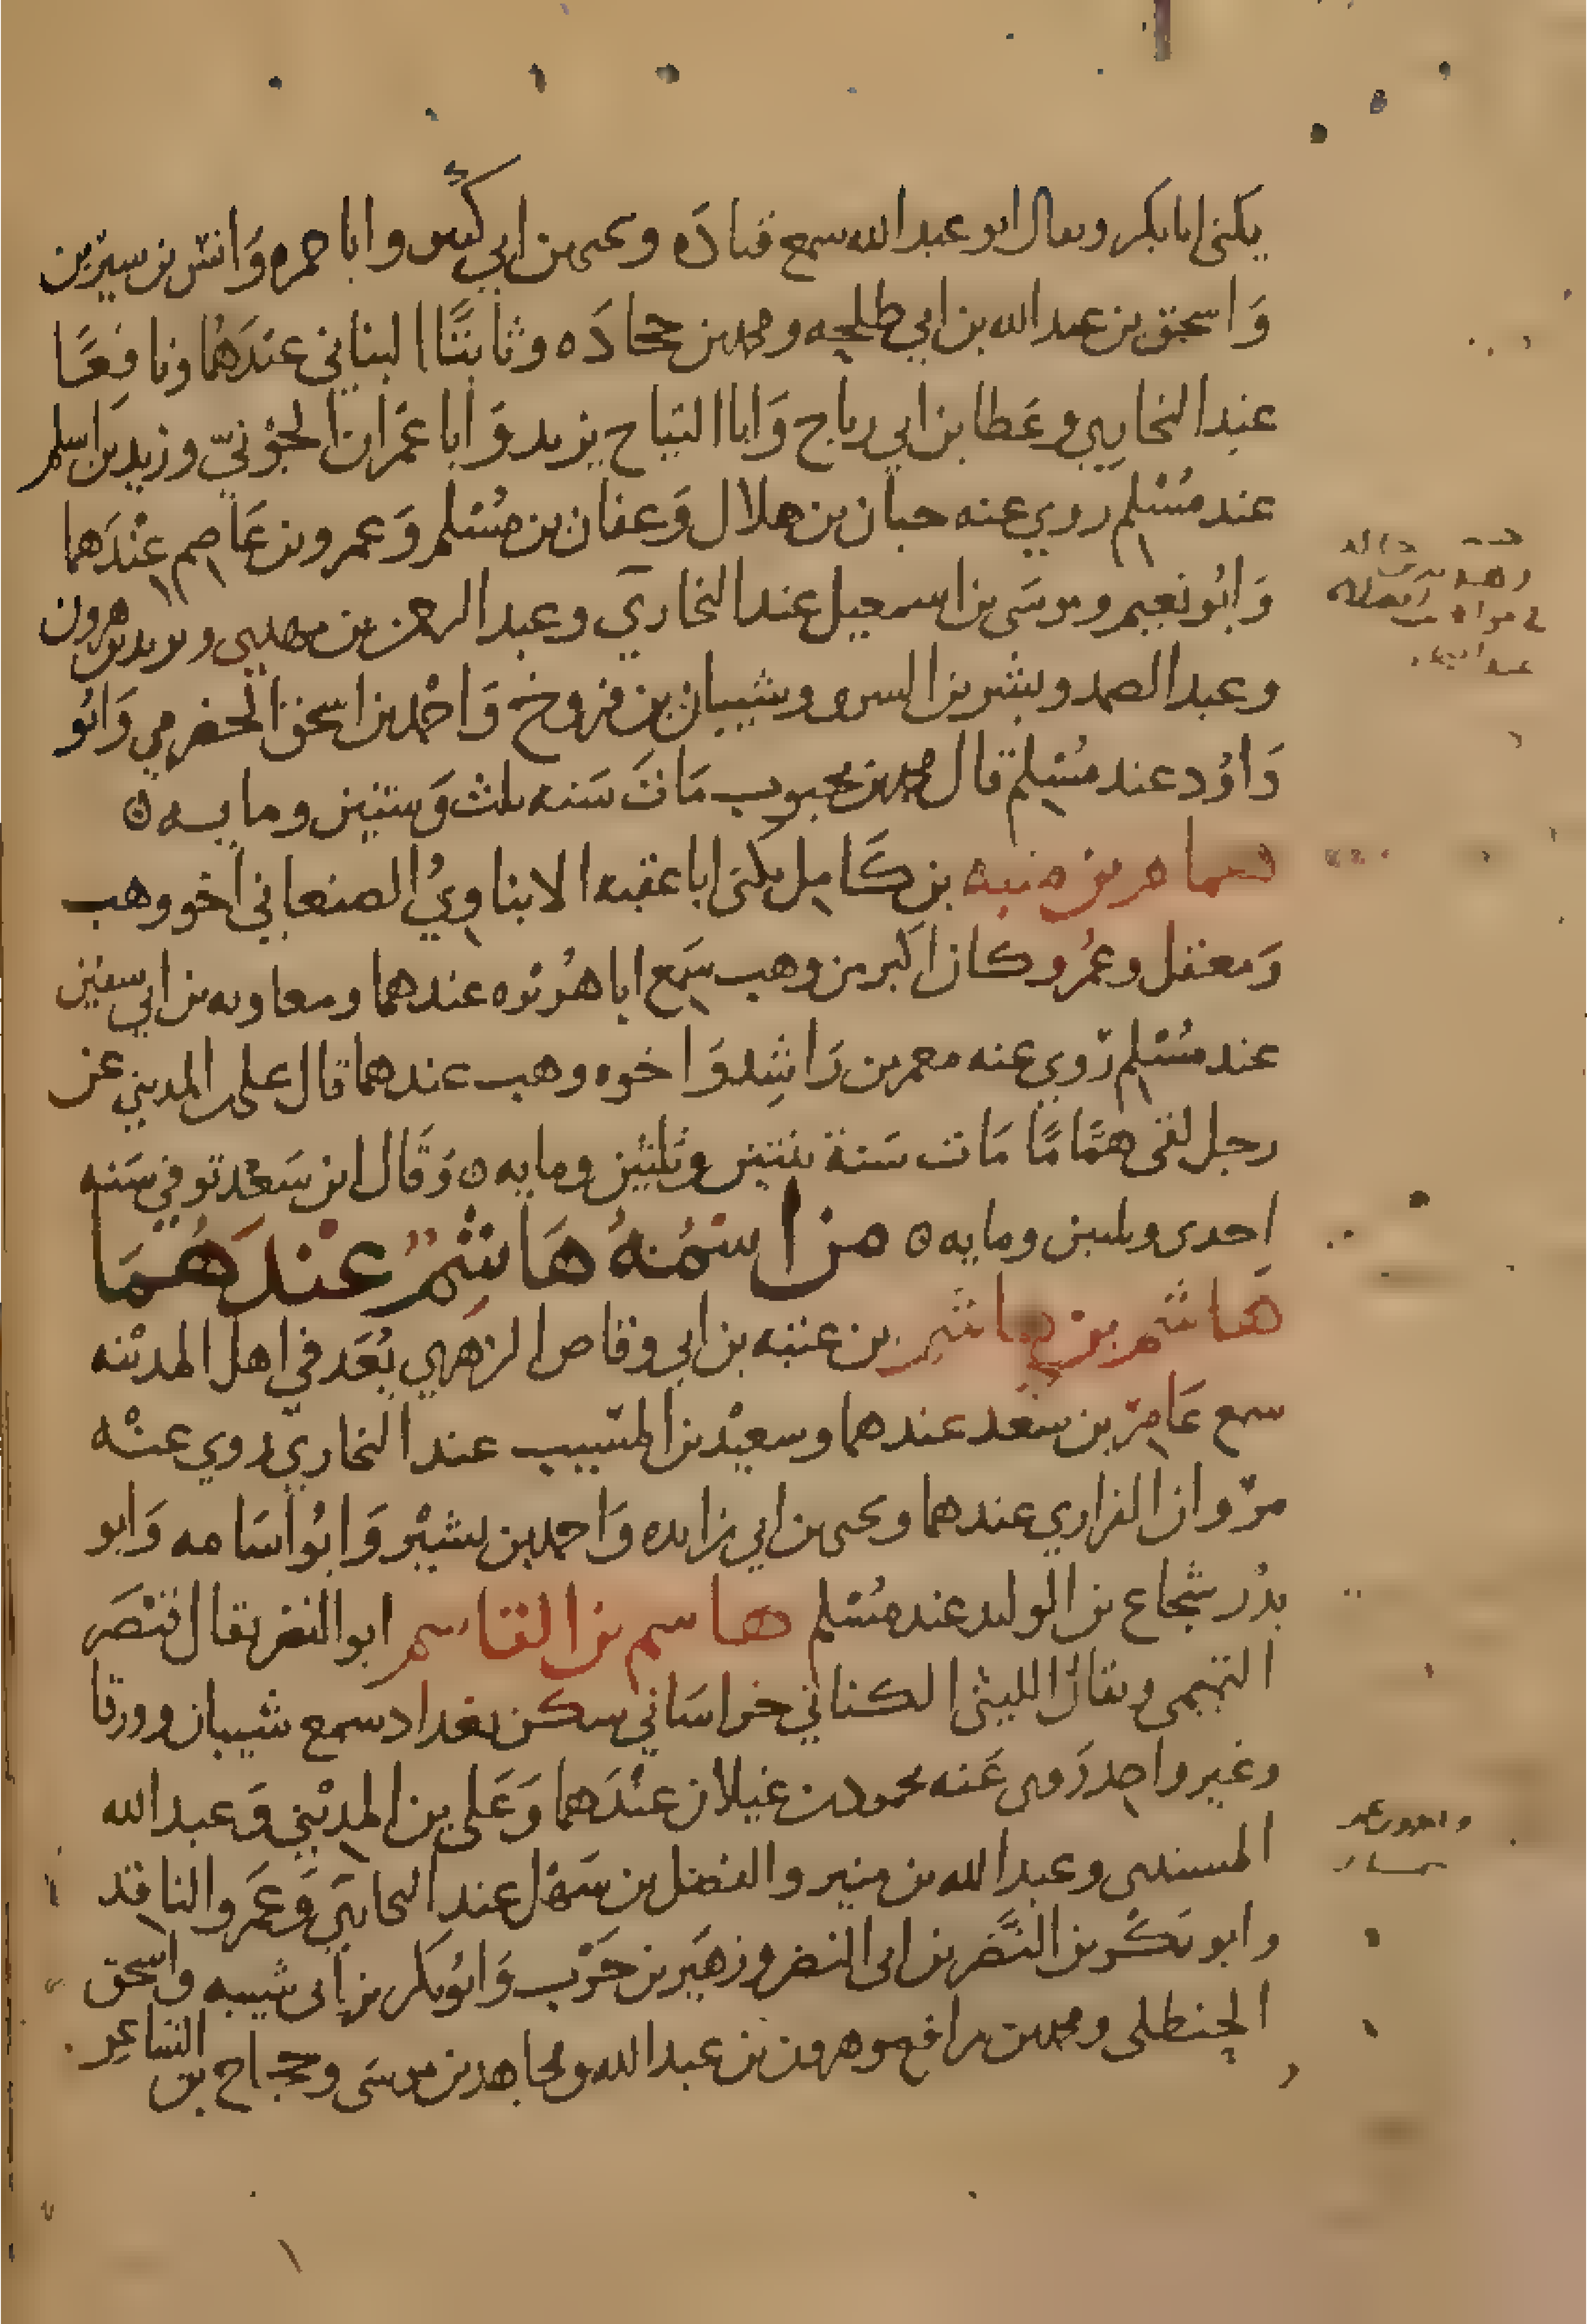 يكنى ابا بكر ويقال ابو عبد الله سمع قتادَه ويحيى بن ابي كثير وابا جمره وَانس بن سيرين
وَاسحق بن عبد الله بن ابي طلحه ومحمد بن جحادَه وثابتًا البناني عندَهُما ونافِعًا
عند البخاري وعَطا بن ابي رباح وَابا التياح يزيد وَابا عمَران الجَوْنيّ وزيد بن اسلم
عند مسُلم روي عنه حبان بن هلال وَعفان بن مسُلم وَعمرو بن عَاصم عنْدَهما
وَابُو نعيم وموسَى بن اسمعيل عند البخاري وعبد الرحمن بن مهدي ويزيد بن هرون
وعبد الصمد وبشر بن السري وشيبان بن فروخ وَاحْمد بن اسحق الحضرمي وَابُو
دَاوُد عند مسُلم قال محمد بن محبوب مَاتَ سَنه ثلث وَستين ومايه ه
همام بن منبه بن كَامِل يكنى ابا عقبه الابناوِيُ الصنعاني اخو وهب
وَمعقل وعمُر وكان اكبر من وهب سَمع ابا هُرَيْره عندهما ومعاويه بن ابي سفين
عند مسُلم رَوي عنه معمر بن رَاشِد وَاخوه وهب عندهما قال علي بن المديني عن
رجل لقى همَّامًا مَات سَنة ثنتين وثلثين ومايه ه وَقَال ابن سَعْد توفي سَنه
احدى وثلثين ومايه ه من اسْمُهُ هَاشمُ عنْدَهُمَا
هَاشم بن هاشم بن عتبه بن ابي وقاص الزهري يُعَد في اهل المديْنه
سمع عَامِر بن سَعد عندهما وسعيْد بن المسَيب عند البخاري روي عنْه
مرْوان الفزاري عندهما ويحيى بن ابي زايده وَاحمد بن بشيْر وَابُو اُسَامه وَابو
بدْر شجاع بن الوليد عند مسُلم هاسم بن القاسم ابو النضر يقال قيْصَر
التميمى ويقال الليثى الكناني خراسَاني سكن بغداد سمع شيبان وورقا
وغير واحِد رَوى عَنه محمود بن غيلان عنْدَهما وَعَلي بن المديْني وَعبد الله
المسندى وعبد الله بن منير والفضل بن سَهْل عند البخاري وَعمَرو الناقد
وابو بكْر بن النَّضر بن ابى النضر وزهَير بن حَرْب وَابُو بكر بن ابى شيبه واسحق
الحنظلى ومحمد بن رافع وهرون بن عبد الله ومجاهد بن موسَى وحجاج بن الشاعِر